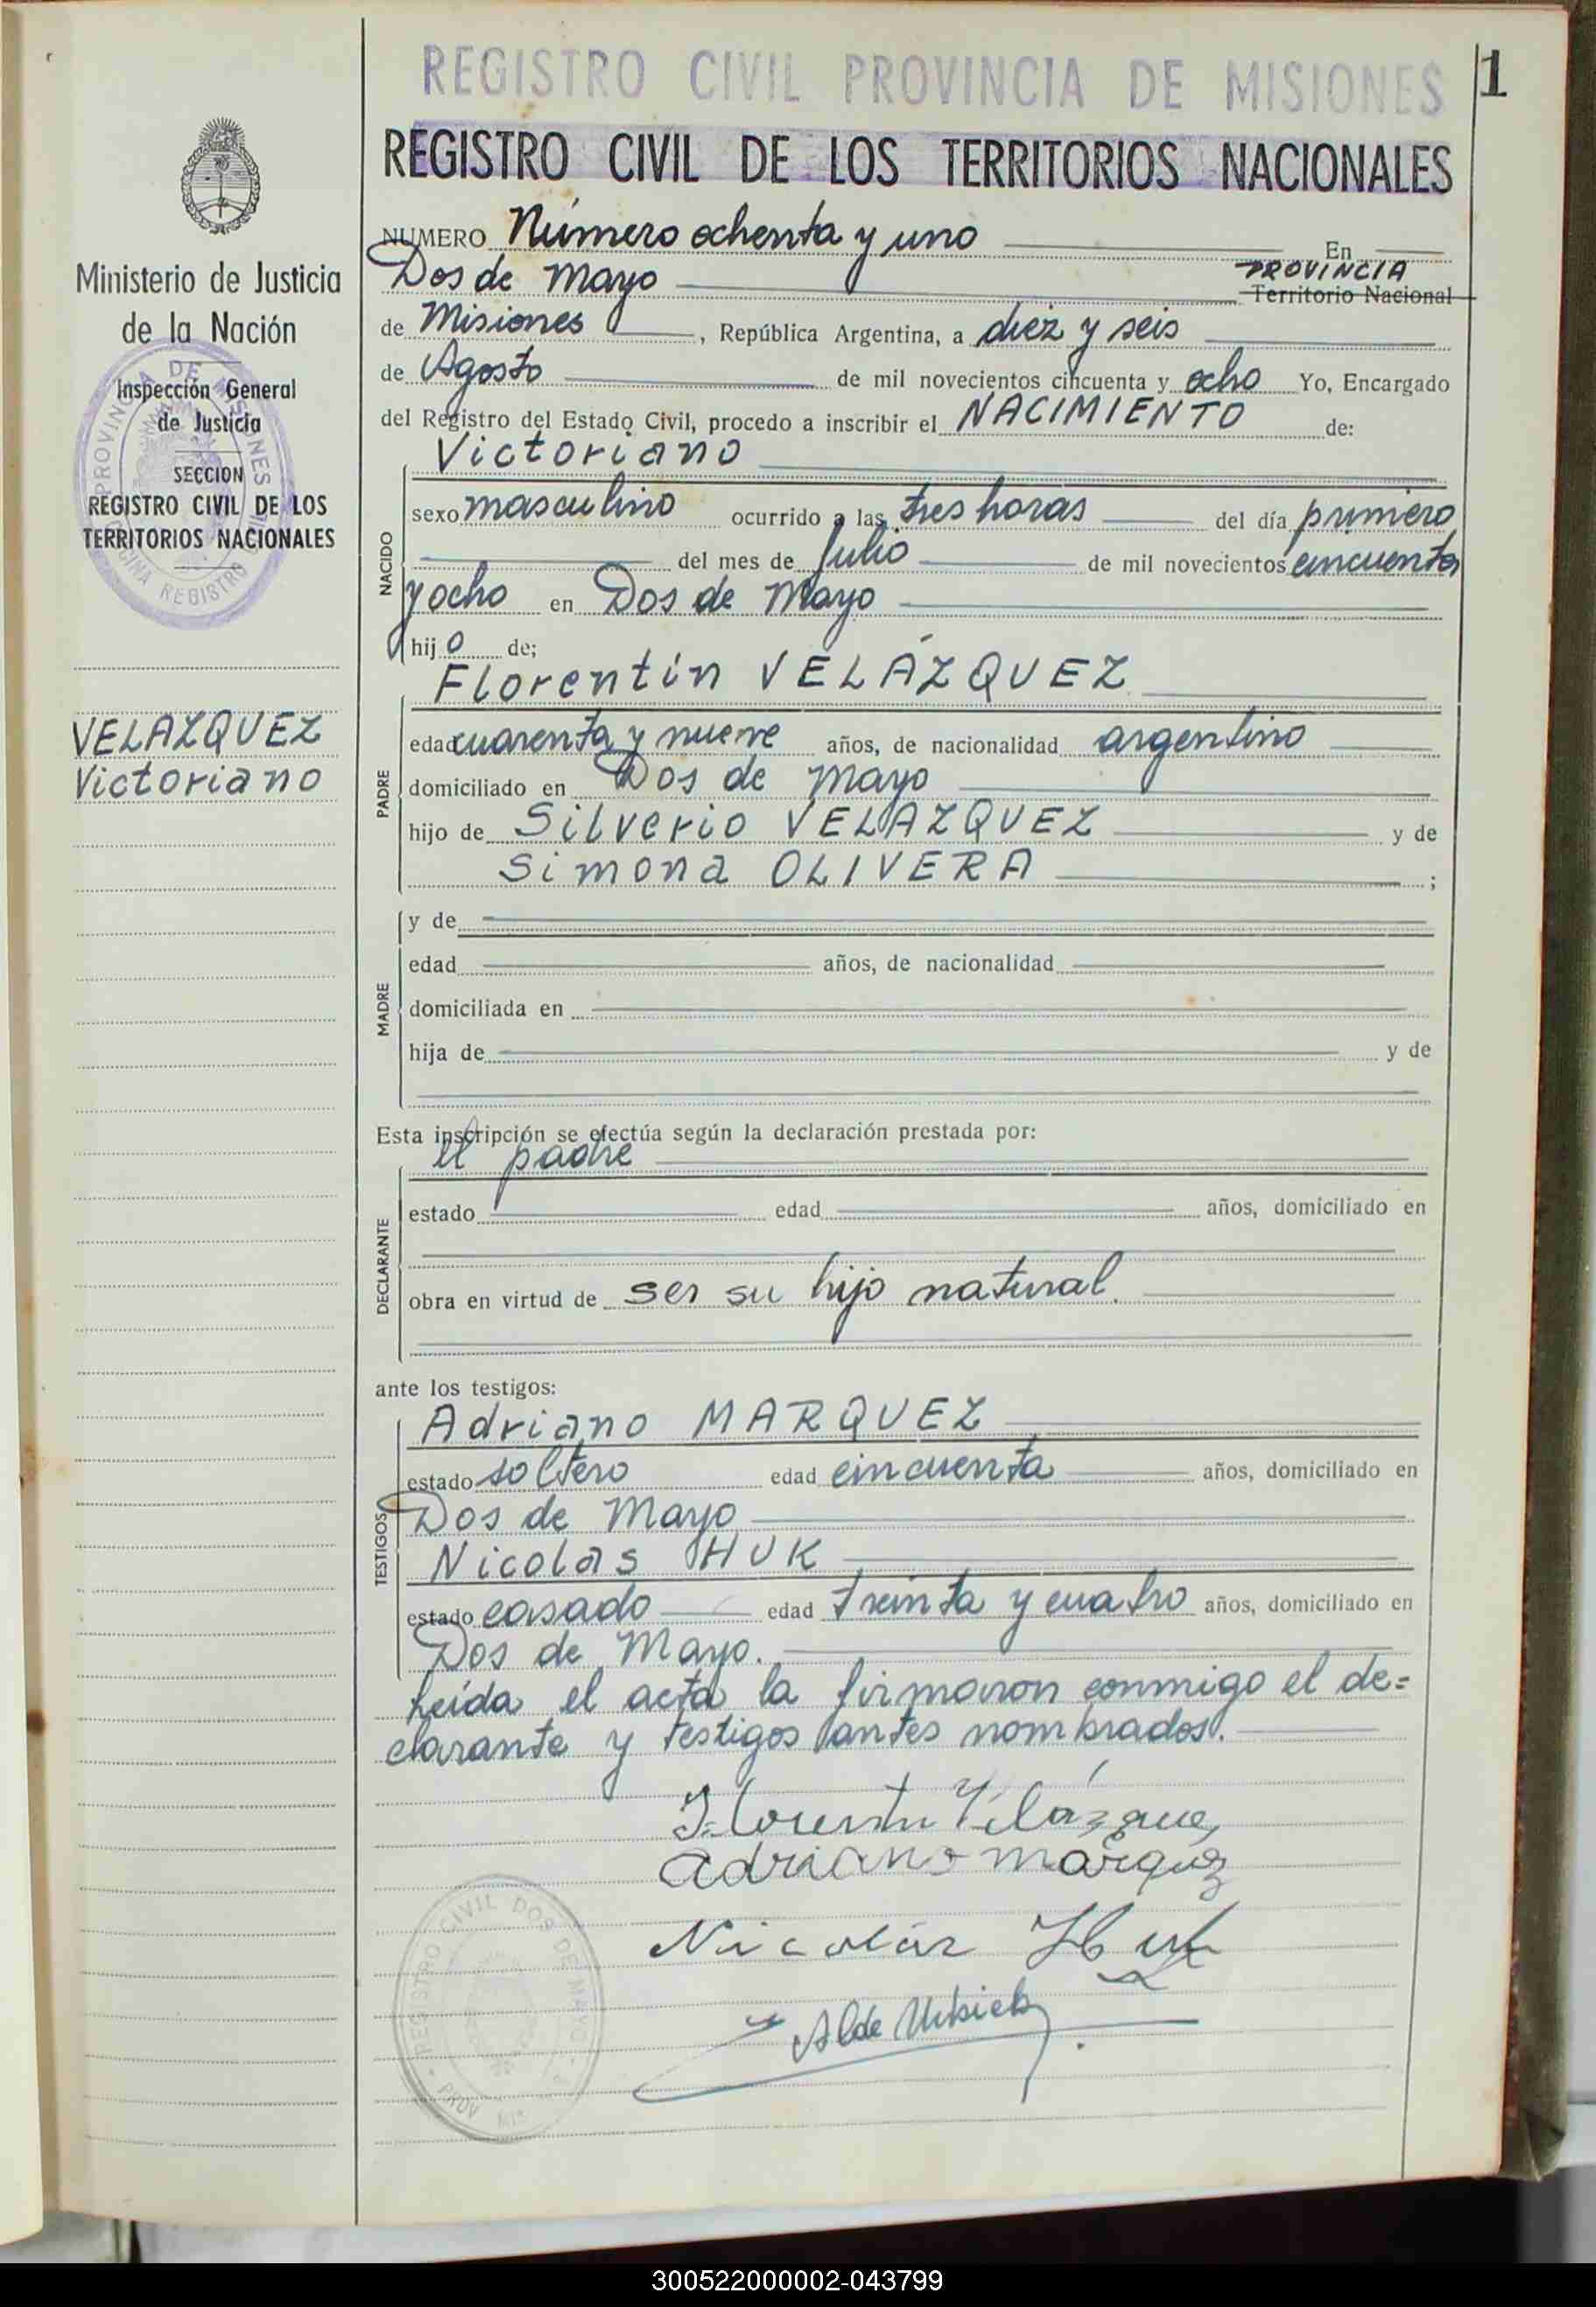 REGISTRO CIVIL PROVINCIA DE MISIONES
1
REGISTRO CIVIL DE LOS TERRITORIOS NACIONALES
Ministerio de Justicia
de la Nación
Inspección General
de Justicia
SECCION
REGISTRO CIVIL DE LOS
TERRITORIOS NACIONALES
PROVINCIA DE MISIONES
OFICINA REGISTRO CIVIL
VELAZQUEZ
Victoriano
NUMERO Número ochenta y uno En
Dos de Mayo PROVINCIA Territorio Nacional
de Misiones, República Argentina, a diez y seis
de Agosto de mil novecientos cincuenta y ocho Yo, Encargado
del Registro del Estado Civil, procedo a inscribir el NACIMIENTO de:
NACIDO
Victoriano
sexo masculino ocurrido a las tres horas del día primero
del mes de Julio de mil novecientos cincuenta
y ocho en Dos de Mayo
hijo de;
PADRE
Florentín VELÁZQUEZ
edad cuarenta y nueve años, de nacionalidad argentino
domiciliado en Dos de Mayo
hijo de Silverio VELAZQUEZ y de
Simona OLIVERA ;
MADRE
y de
edad años, de nacionalidad
domiciliada en
hija de y de
Esta inscripción se efectúa según la declaración prestada por:
DECLARANTE
el padre
estado edad años, domiciliado en
obra en virtud de ser su hijo natural.
ante los testigos:
TESTIGOS
Adriano MARQUEZ
estado soltero edad cincuenta años, domiciliado en
Dos de Mayo
Nicolás HUK
estado casado edad treinta y cuatro años, domiciliado en
Dos de Mayo.
Leída el acta la firmaron conmigo el de=
clarante y testigos antes nombrados.
Florentin Velázquez
Adriano Márquez
Nicolás Huk
Alde
REGISTRO CIVIL DOS DE MAYO
PROV MIS
300522000002-043799